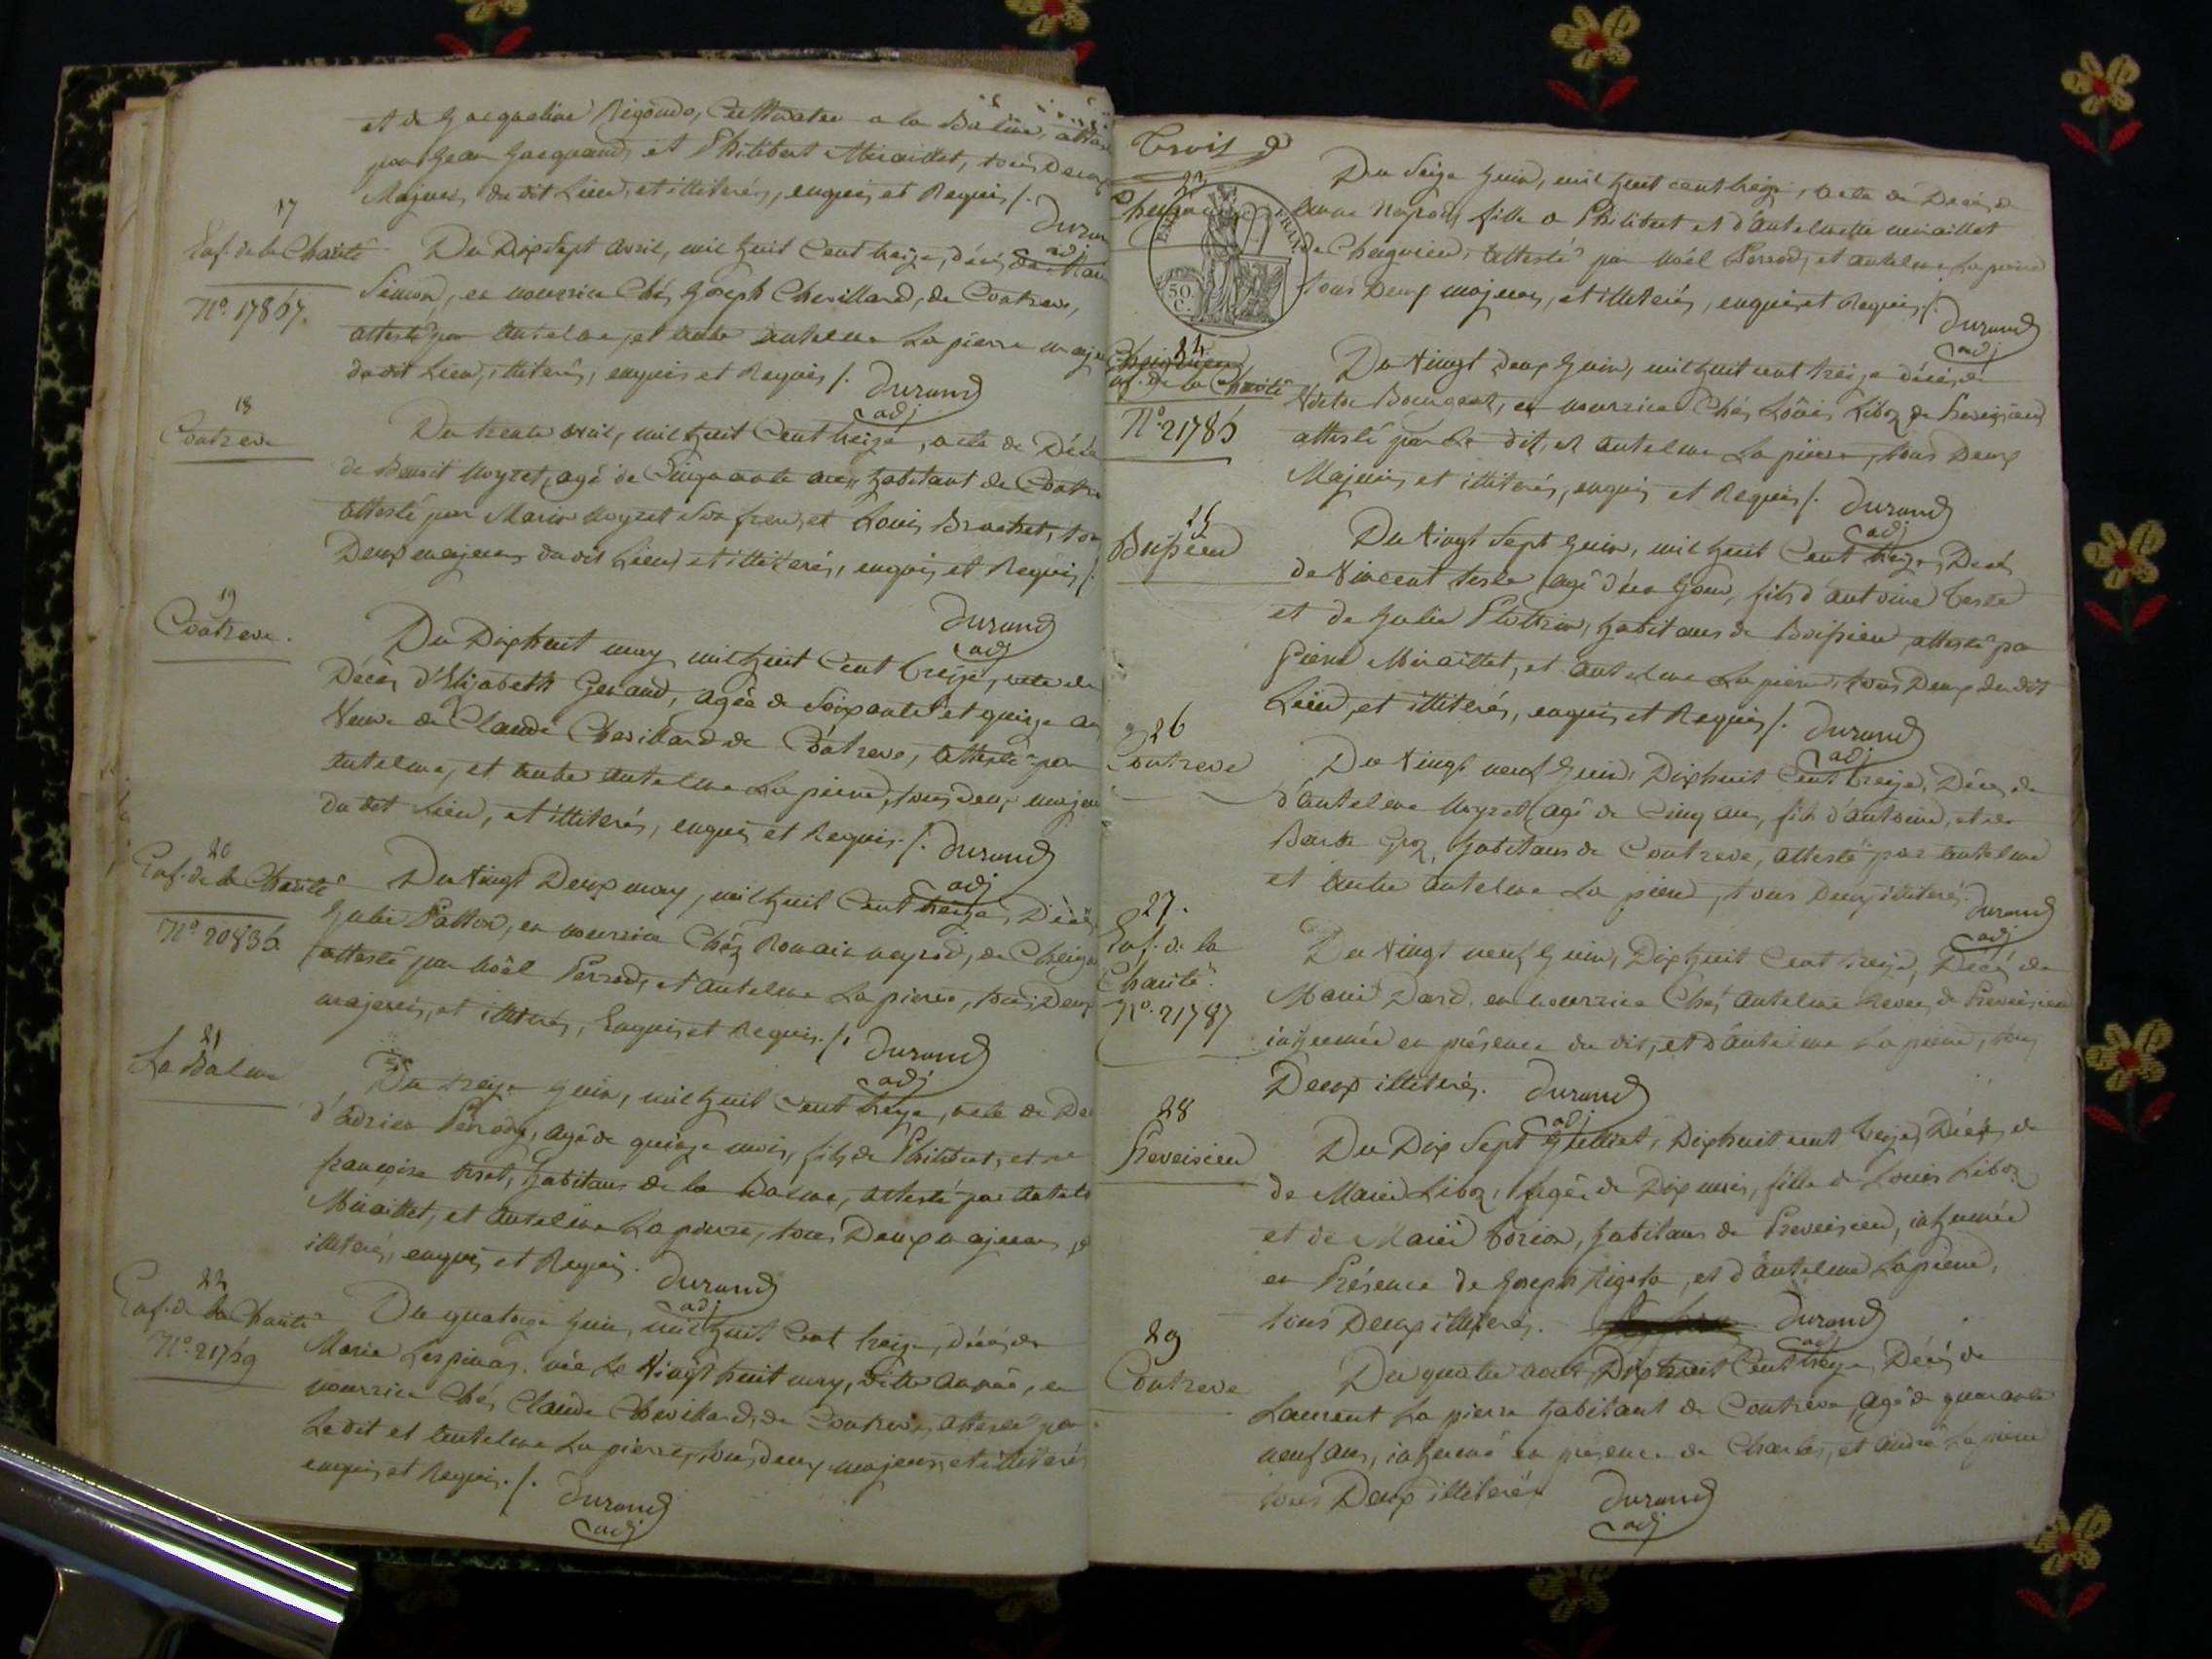 et de Jacqueline Rigoud, Cultivateur a la Balme, attesté
par Jean Jacquand, et Philibert Miraillet, tous Deux
Majeurs, du dit Lieu, et illiterés, enquis et Requis /.
Durand
adj
17
Enf. de la Charité
N.º 17867.
Du Dix Sept avril, mil huit Cent treize, décés de
Simon, en nourrice Chés Joseph Chevillard, de Contreve,
attesté par antelme, et autre antelme La pierre majeurs
du dit Lieu, illiterés, enquis et Requis /. Durand
adj
18
Contreve
Du trente avril, mil huit Cent treize, acte de Décés
de Benoit Moyret, agé de Cinquante ans, habitant de Contreve
attesté par Marin Moyret Son frere, et Louis Brachet, tous
Deux majeurs du dit Lieu, et illiterés, enquis et Requis /.
Durand
adj
19
Contreve.
Du Dixhuit may mil huit Cent treize, acte de
Décés d'Elizabeth Gerand, agée de Soixante et quinze ans
Veuve de Claude Chevillard de Contreve, attesté par
antelme, et autre antelme La pierre, tous deux majeurs
du dit Lieu, et illiterés, enquis et Requis. /. Durand
adj
20
Enf. de la Charité
N.º 20836
Du Vingt Deux may, mil huit Cent treize, Décés
Julie Patton, en nourrice Chés Romain neyrod, de Cheignieu
attesté par Noël Perrod, et antelme La pierre, tous Deux
majeurs, et illiterés, Enquis et Requis. /. Durand
adj
21
La Balme
Du treize Juin, mil huit Cent treize, acte de Décés
d'adrien Perrod, agé de quinze mois, fils de Philibert, et de
françoise tiret, habitans de la Balme, attesté par antelme
Miraillet, et antelme La pierre, tous Deux majeurs, et
illiterés, enquis et Requis. Durand
adj
22
Enf. de la Charité
N.º 21769
Du quatorze Juin, mil huit Cent treize, décés de
Marie Lespinas, née le Vingt huit may, ditte année, en
nourrice Chés Claude Chevillard, de Contreve, attesté par
Le dit et antelme La pierre, tous deux majeurs, et illiterés
enquis et Requis. /. Durand
adj
Trois
23
Cheignieu
50
C.
Du Seize Juin, mil huit cent treize, acte de Décés de
anne neyrod, fille a Philibert et d'antelmette miraillet
de Cheignieu, attesté par Noël Perrod, et antelme La pierre
tous Deux majeurs, et illiterés, enquis et Requis /. Durand
adj
24
Cheignieu
enf. de la Charité
N.º 21786
Du Vingt Deux Juin, mil huit cent treize décés de
Victor Bourgeat, en nourrice Chés Louis Liboz de Preveisieu
attesté par Le dit, et antelme La pierre, tous Deux
Majeurs et illiterés, enquis et Requis /. Durand
adj
25
Boissieu
Du Vingt Sept Juin, mil huit Cent treize, Décés
de Vincent teste, agé d'un Jour, fils d'antoine teste
et de Julie Plottin, habitans de Boissieu, attesté par
Pierre Miraillet, et antelme La pierre, tous Deux du dit
Lieu, et illiterés, enquis et Requis /. Durand
adj
26
Contreve
Du Vingt neuf Juin, Dixhuit Cent treize, Décés de
d'antelme Moyret, agé de Cinq ans, fils d'antoine, et de
Barbe Groz, habitans de Contreve, attesté par antelme
et autre antelme La pierre, tous Deux illiterés. Durand
adj
27.
Enf. de la
Charité.
N.º 21787
Du Vingt neuf Juin, Dixhuit Cent treize, Décés de
Marie Dard, en nourrice Chés antelme Revex, de Preveisieu
inhumée en présence du dit, et d'antelme La pierre, tous
Deux illiterés. Durand
adj
28
Preveisieu
Du Dix Sept Juillet, Dixhuit cent treize, Décés de
de Marie Liboz, agée de Dix mois, fille de Louis Liboz
et de Marie torion, habitans de Preveisieu, inhumée
en Présence de Joseph Rigola, et d'antelme Lapierre,
tous Deux illiterés. Durand
adj
29
Contreve
Du quatre août, Dixhuit Cent treize, Décés de
Laurent La pierre habitant de Contreve, agé de quarante
neuf ans, inhumé en présence de Charles, et andré La pierre
tous Deux illiterés Durand
adj